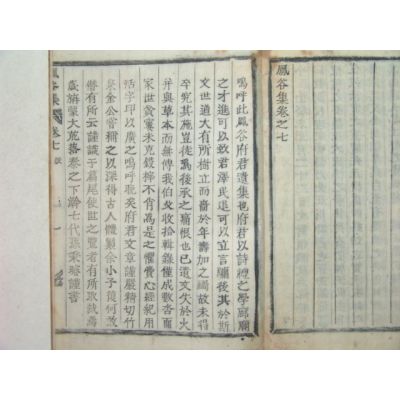 鳳谷集卷之七
嗚呼此鳳谷府君遺集也府君以詩禮之學廊廟
之才進可以致君澤民退可以立言後其於斯
文世道大有所樹立而嗇於年壽加之故未得
卒究其施豈徒爲後承之痛恨也已遺文失於火
并與草本而無傳我伯父收拾輯錄僅成數而
家世貧寠未克鋟梓不肖爲是之懼費心經紀用
活字印以廣之嗚呼矣府君文章謹嚴精切竹
泉金公嘗稱之以深得古人體製余小子復何敢
贅有所云謹識于篇尾使世之覽者有所取焉
歲旃蒙大荒落泰之下七代孫秉謹書
鳳谷集 卷七 跋 一